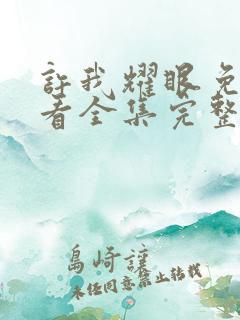 許我耀眼免
看全集完整
島崎謹
未经同意禁止转载